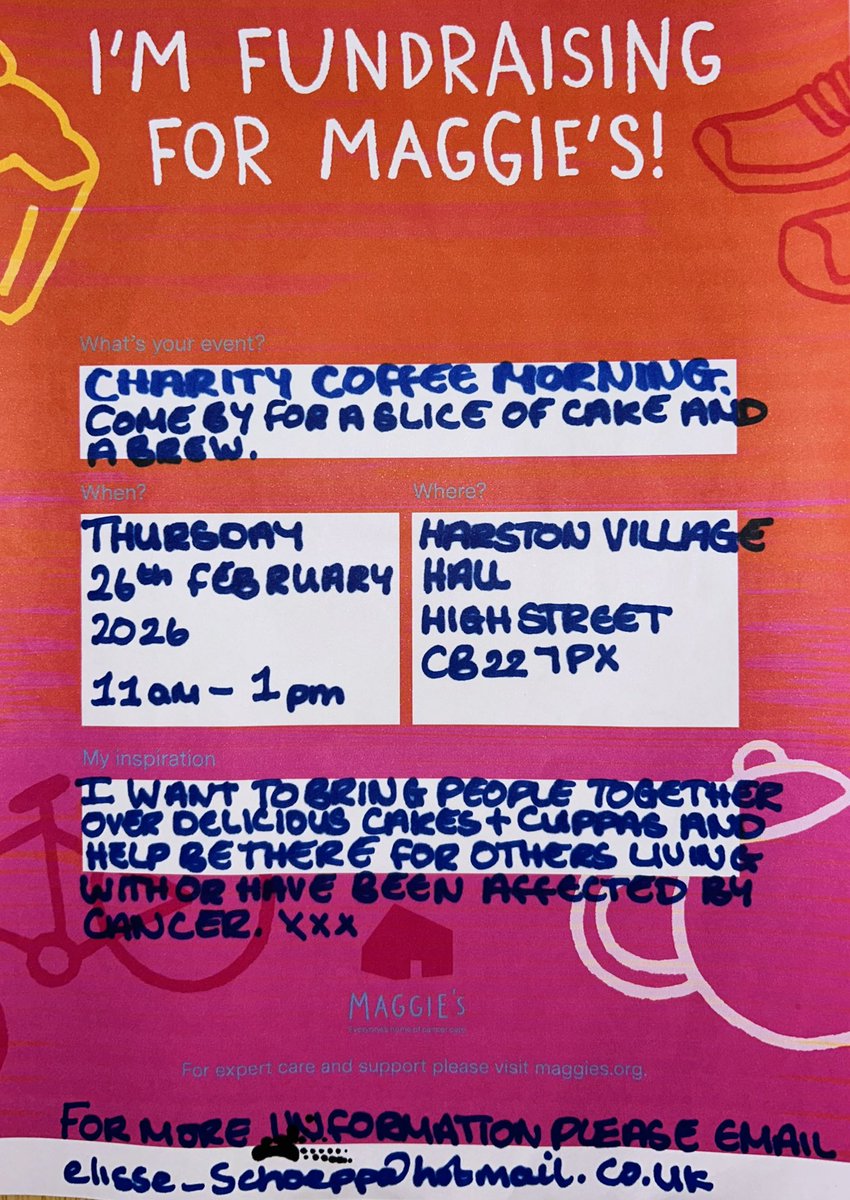 I'M FUNDRAISING
FOR MAGGIE'S!
What's your event?
CHARITY COFFEE MORNING.
COME BY FOR A SLICE OF CAKE AND
A BREW.
When?
THURSDAY
26th FEBRUARY
2026
11am – 1pm
Where?
HARSTON VILLAGE
HALL
HIGH STREET
CB22 7PX
My inspiration
I WANT TO BRING PEOPLE TOGETHER
OVER DELICIOUS CAKES + CUPPAS AND
HELP BE THERE FOR OTHERS LIVING
WITH OR HAVE BEEN AFFECTED BY
CANCER. xxx
MAGGIE'S
Everyone's home of cancer care
For expert care and support please visit maggies.org.
FOR MORE INFORMATION PLEASE EMAIL
elisse_schoepp@hotmail.co.uk